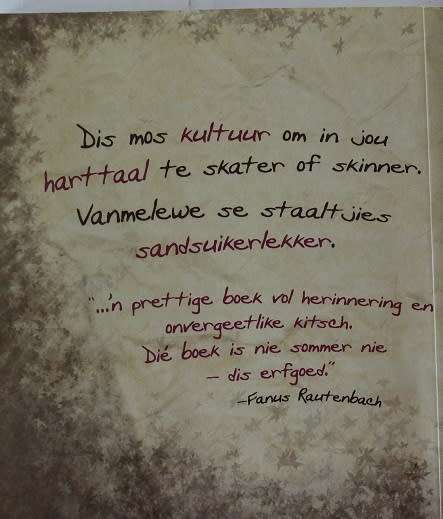 Dis mos kultuur om in jou
harttaal te skater of skinner.
Vanmelewe se staaltjies
sandsuikerlekker.
"...'n prettige boek vol herinnering en
onvergeetlike kitsch.
Dié boek is nie sommer nie
– dis erfgoed."
–Fanus Rautenbach